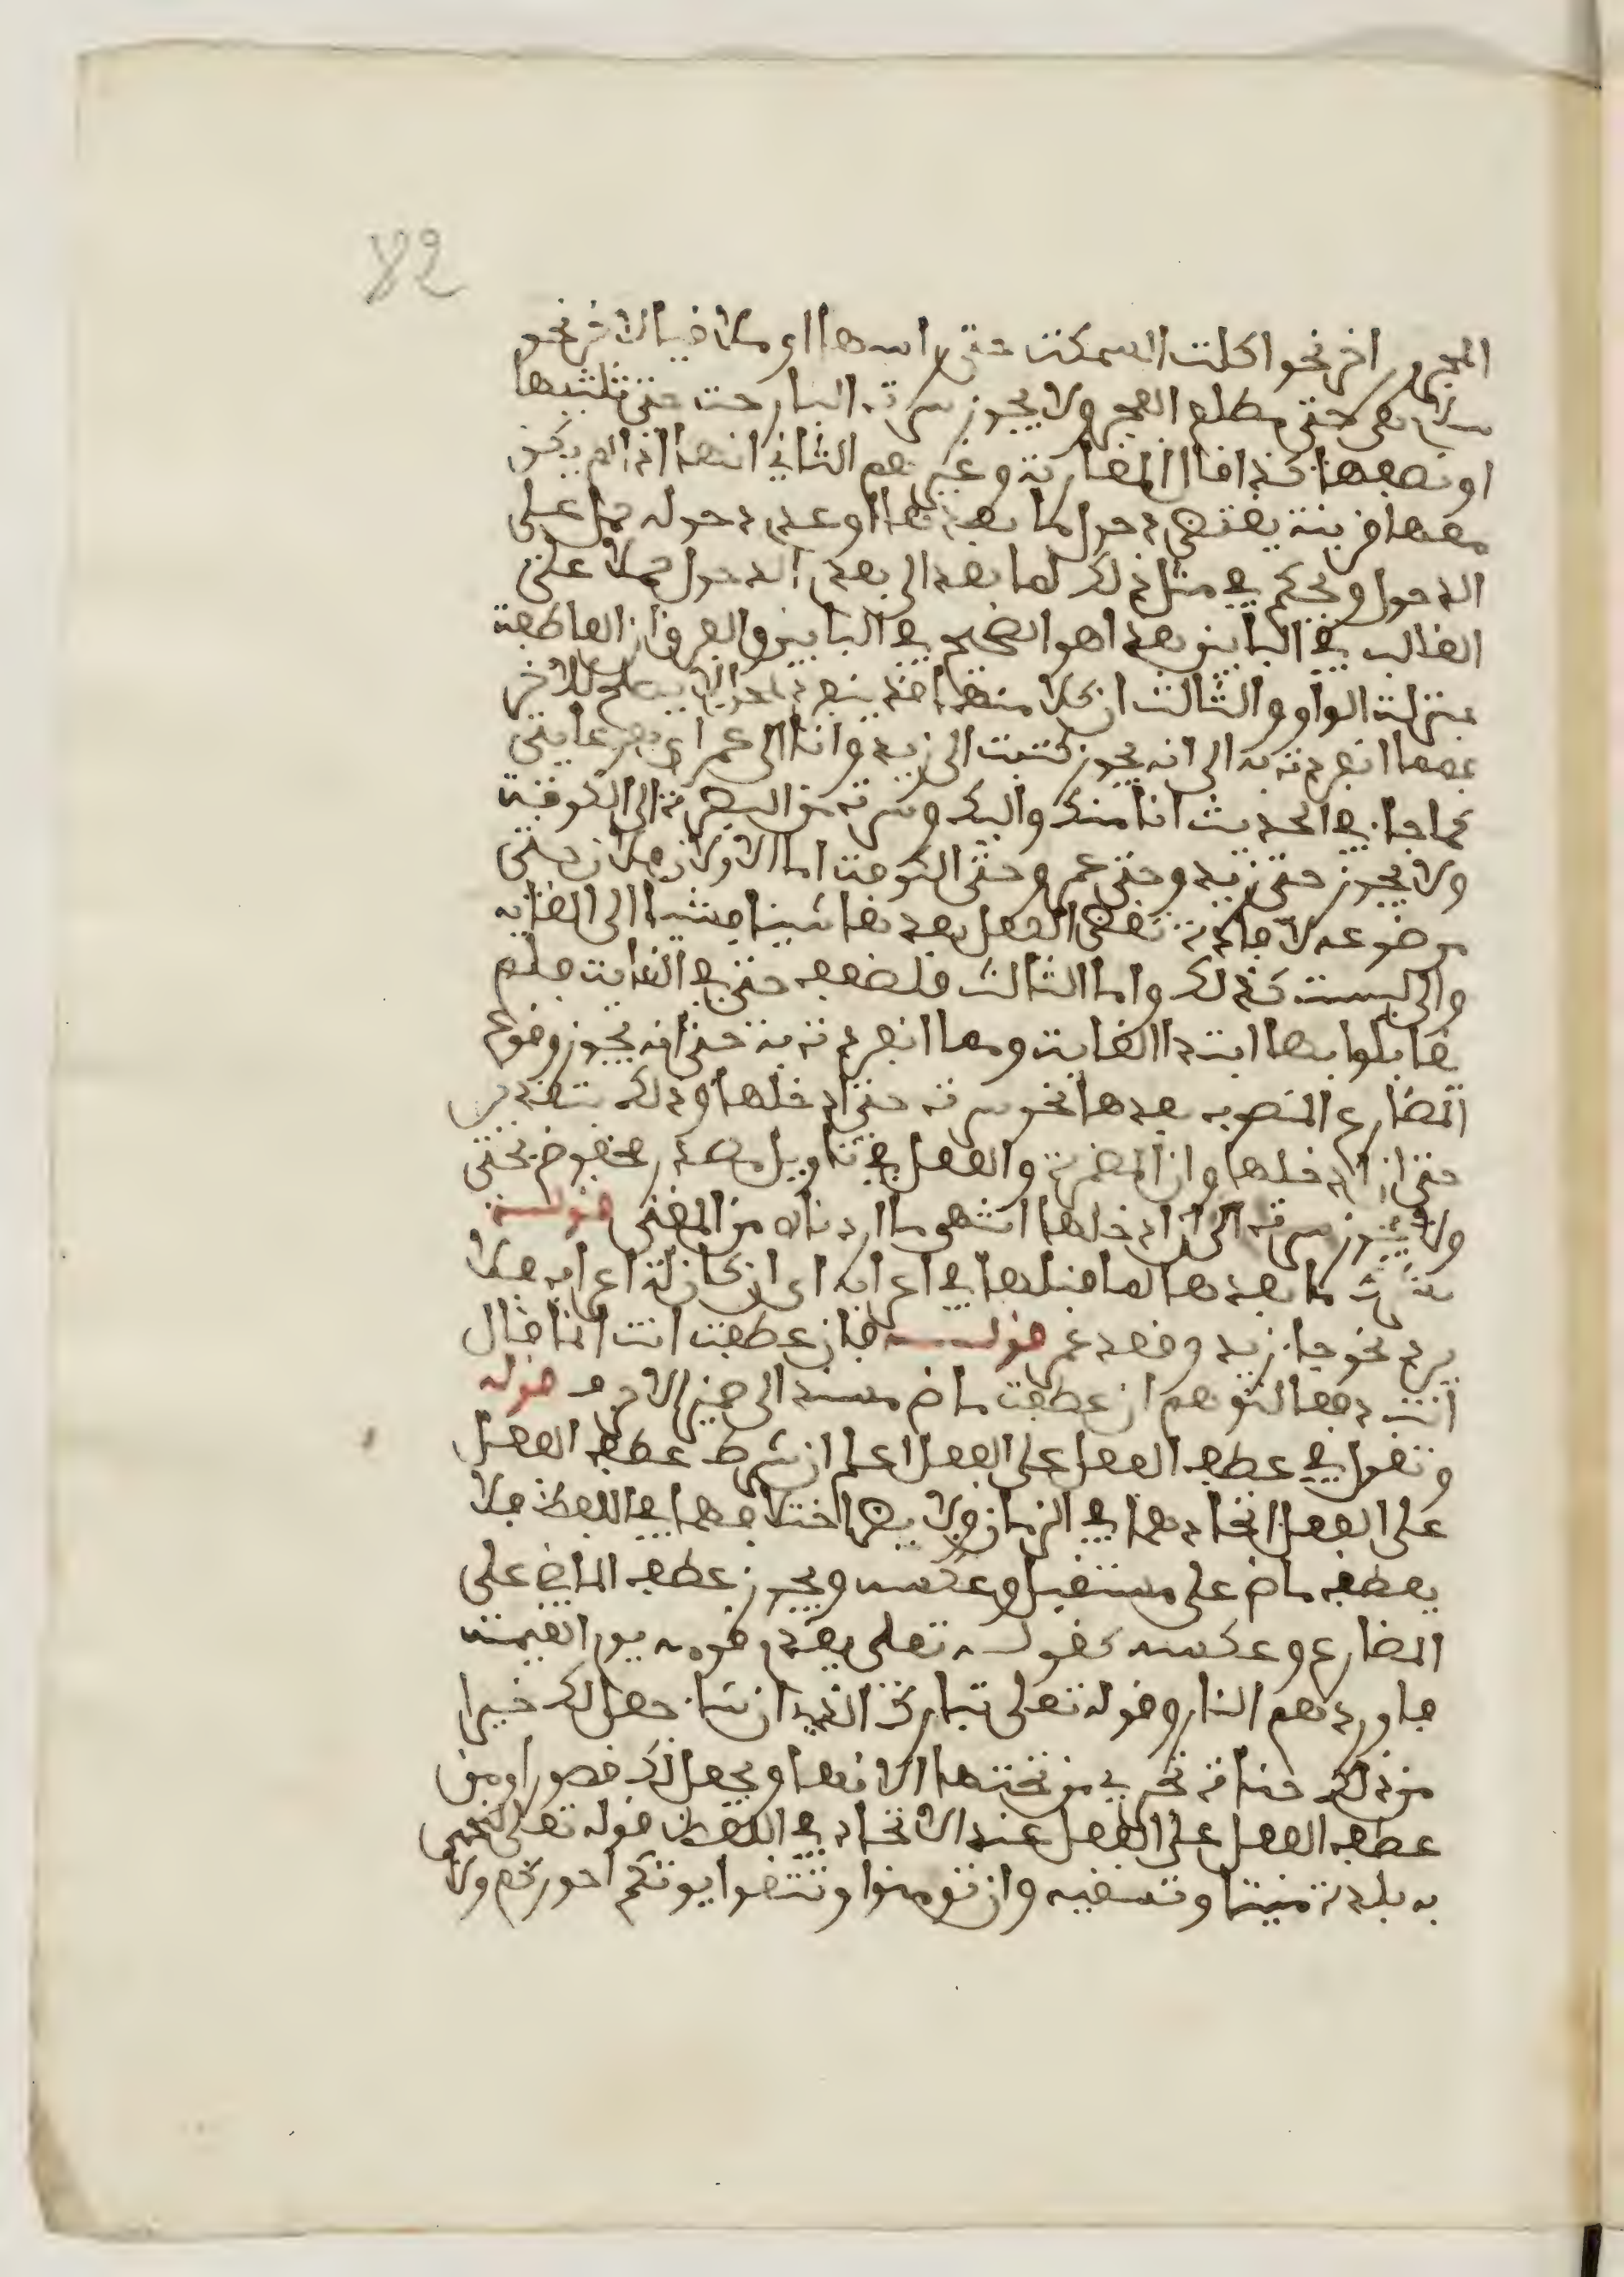 82
المجرور اخر نحو اكلت السمكت حتى راسها او ملاقيا لاخر نحو
سلام هي حتى مطلع الفجر ولا يجوز سرت البارحت حتى ثلثيها
او نصفها كذا قال المغاربة وغيرهم الثاني انها اذا لم يكن
معها قرينة يقتضي دخول ما بعدها او عدم دخوله حمل على
الدخول ويحكم في مثل ذلك لما بعد الى بعدم الدخول حملا على
الغالب في البابين هذا هو الصحيح في البابين والفرق ان العاطفة
بمنزلت الواو والثالث ان كلا منهما قد ينفرد بمحل لا يصلح للاخر
فمما انفردت به الى انه يجوز كتبت الى زيد وانا الى عمر اي هو غايتي
كما جاء في الحديث انا منك واليك وسرت من البصرة الى الكوفة
ولا يجوز حتى زيد وحتى عمر وحتى الكوفت اما الاولان فلان حتى
موضوعه لافادة تقضي الفعل بعدها شيئا فشيئا الى الغايه
والى ليست كذلك واما الثالث فلضعف حتى في الغايت فلم
يقابلوا بها ابتداا الغايت ومما انفردت به حتى انه يجوز وقوع
المضارع المنصوب بعدها نحو سرت حتى ادخلها وذلك بتقدير
حتى ان ادخلها وان المضمرة والفعل في تاويل مصدر مخفوض بحتى
ولا يجوز سرت الى ان ادخلها انتهى ما اردناه من المغني قولـــه
تشرك ما بعدها لما قبلها في اعرابه اي ان كان له اعراب فلا
يرد نحو جاء زيد وقعد عمر قولـــه فان عطفت انت انما قال
انت دفعا لتوهم ان عطفت ماض مسند الى ضمير الاحرف قوله
وتقول في عطف الفعل على الفعل اعلم ان شرط عطف الفعل
على الفعل اتحادهما في الزمان ولا يضر اختلافهما في اللفظ فلا
يعطف ماض على مستقبل وعكسه ويجوز عطف الماضي على
المضارع وعكسه كقولـه تعلى يقدم قومه يوم القيمت
فاوردهم النار وقوله تعلى تبارك الذي ان شاء جعل لك خيرا
من ذلك جنات تجري من تحتها الانهار ويجعل لك قصورا ومن
عطف الفعل على الفعل عند الاتحاد في اللفظ قوله تعلى لنحيي
به بلدة ميتا ونسقيه وان تومنوا وتتقوا يوتكم اجوركم ولا